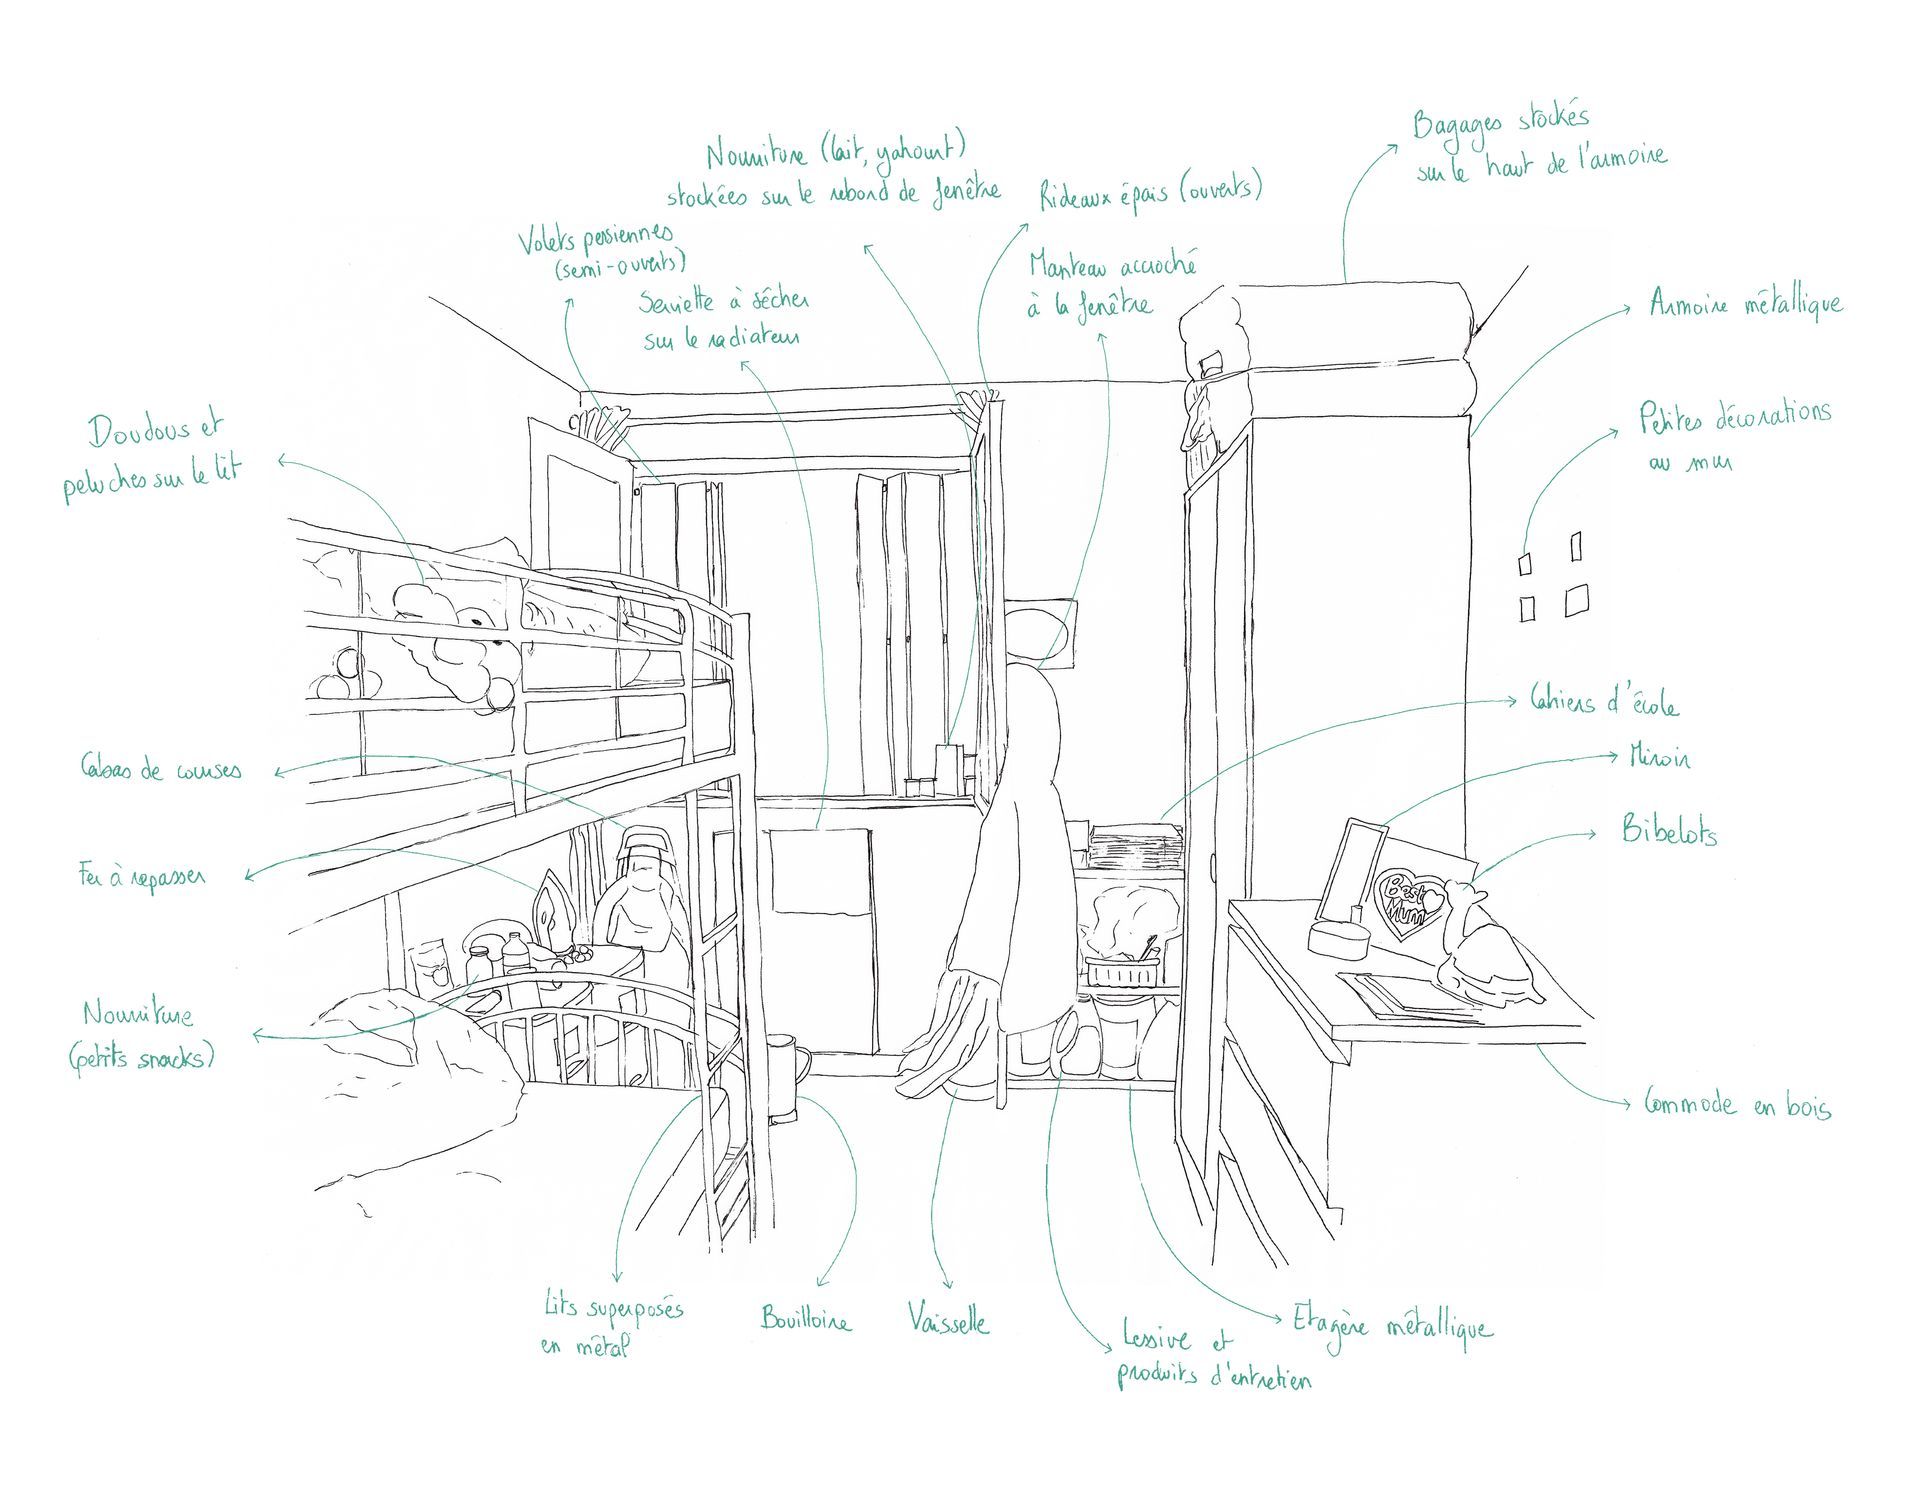 Bagages stockés
sur le haut de l'armoire
Nourriture (lait, yahourt)
stockées sur le rebord de fenêtre
Rideaux épais (ouverts)
Volets persiennes
(semi-ouverts)
Manteau accroché
à la fenêtre
Serviette à sécher
sur le radiateur
Armoire métallique
Petites décorations
au mur
Doudous et
peluches sur le lit
Cahiers d'école
Miroir
Cabas de courses
Bibelots
Fer à repasser
Best
Mum
Nourriture
(petits snacks)
Commode en bois
Lits superposés
en métal
Bouilloire
Vaisselle
Lessive et
produits d'entretien
Etagère métallique